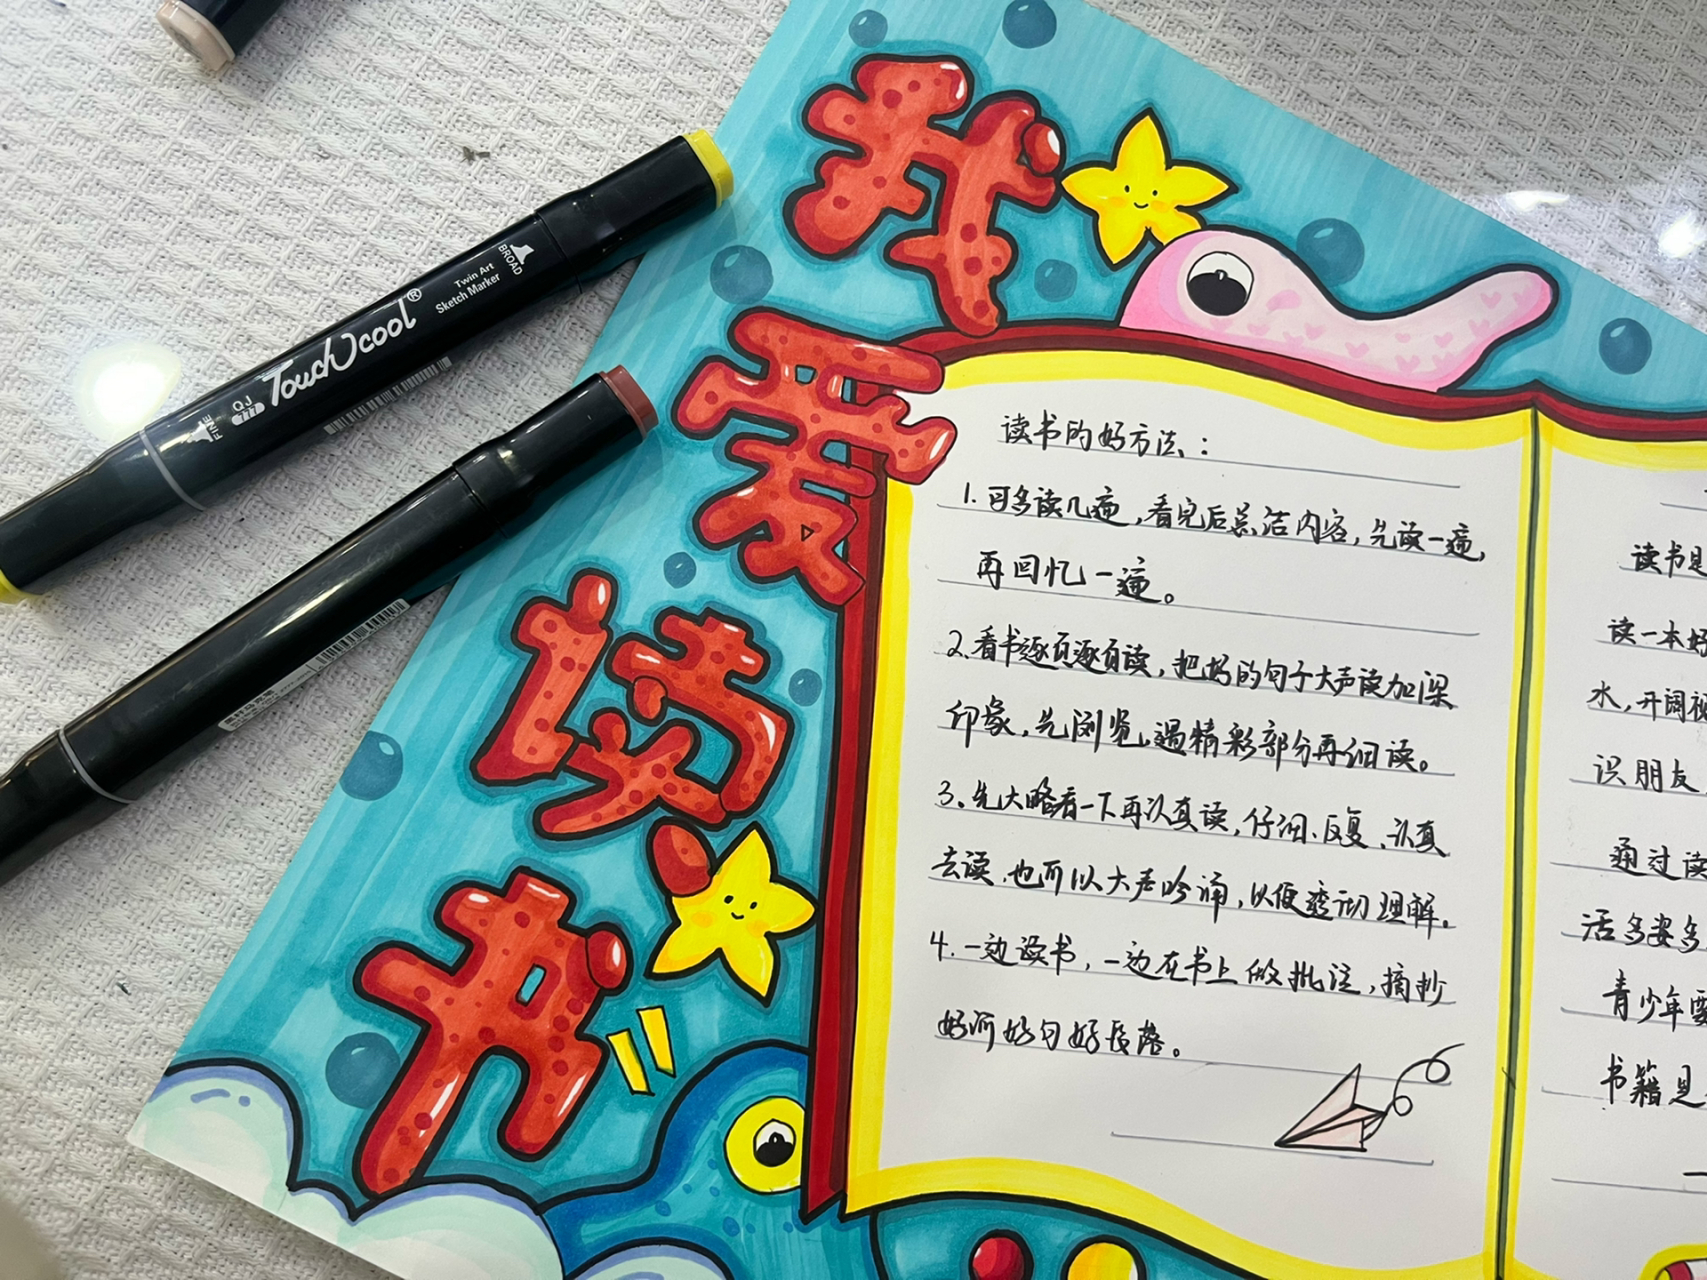 我
爱
读
书
读书的好方法：
1.可多读几遍，看完后总洁内容，先读一遍，
再回忆一遍。
2.看书逐页逐页读，把好的句子大声读加深
印象，先浏览，遇精彩部分再细读。
3、先大略看一下再认真读，仔细、反复、认真
去读，也可以大声吟诵，以便透彻理解。
4.一边读书，一边在书上做批注，摘抄
好词好句好段落。
读书是
读一本好
水，开阔视
识朋友
通过读
活多姿多
青少年要
书籍是
TouchCool®
Twin Art
Sketch Marker
BROAD
FINE
QJ